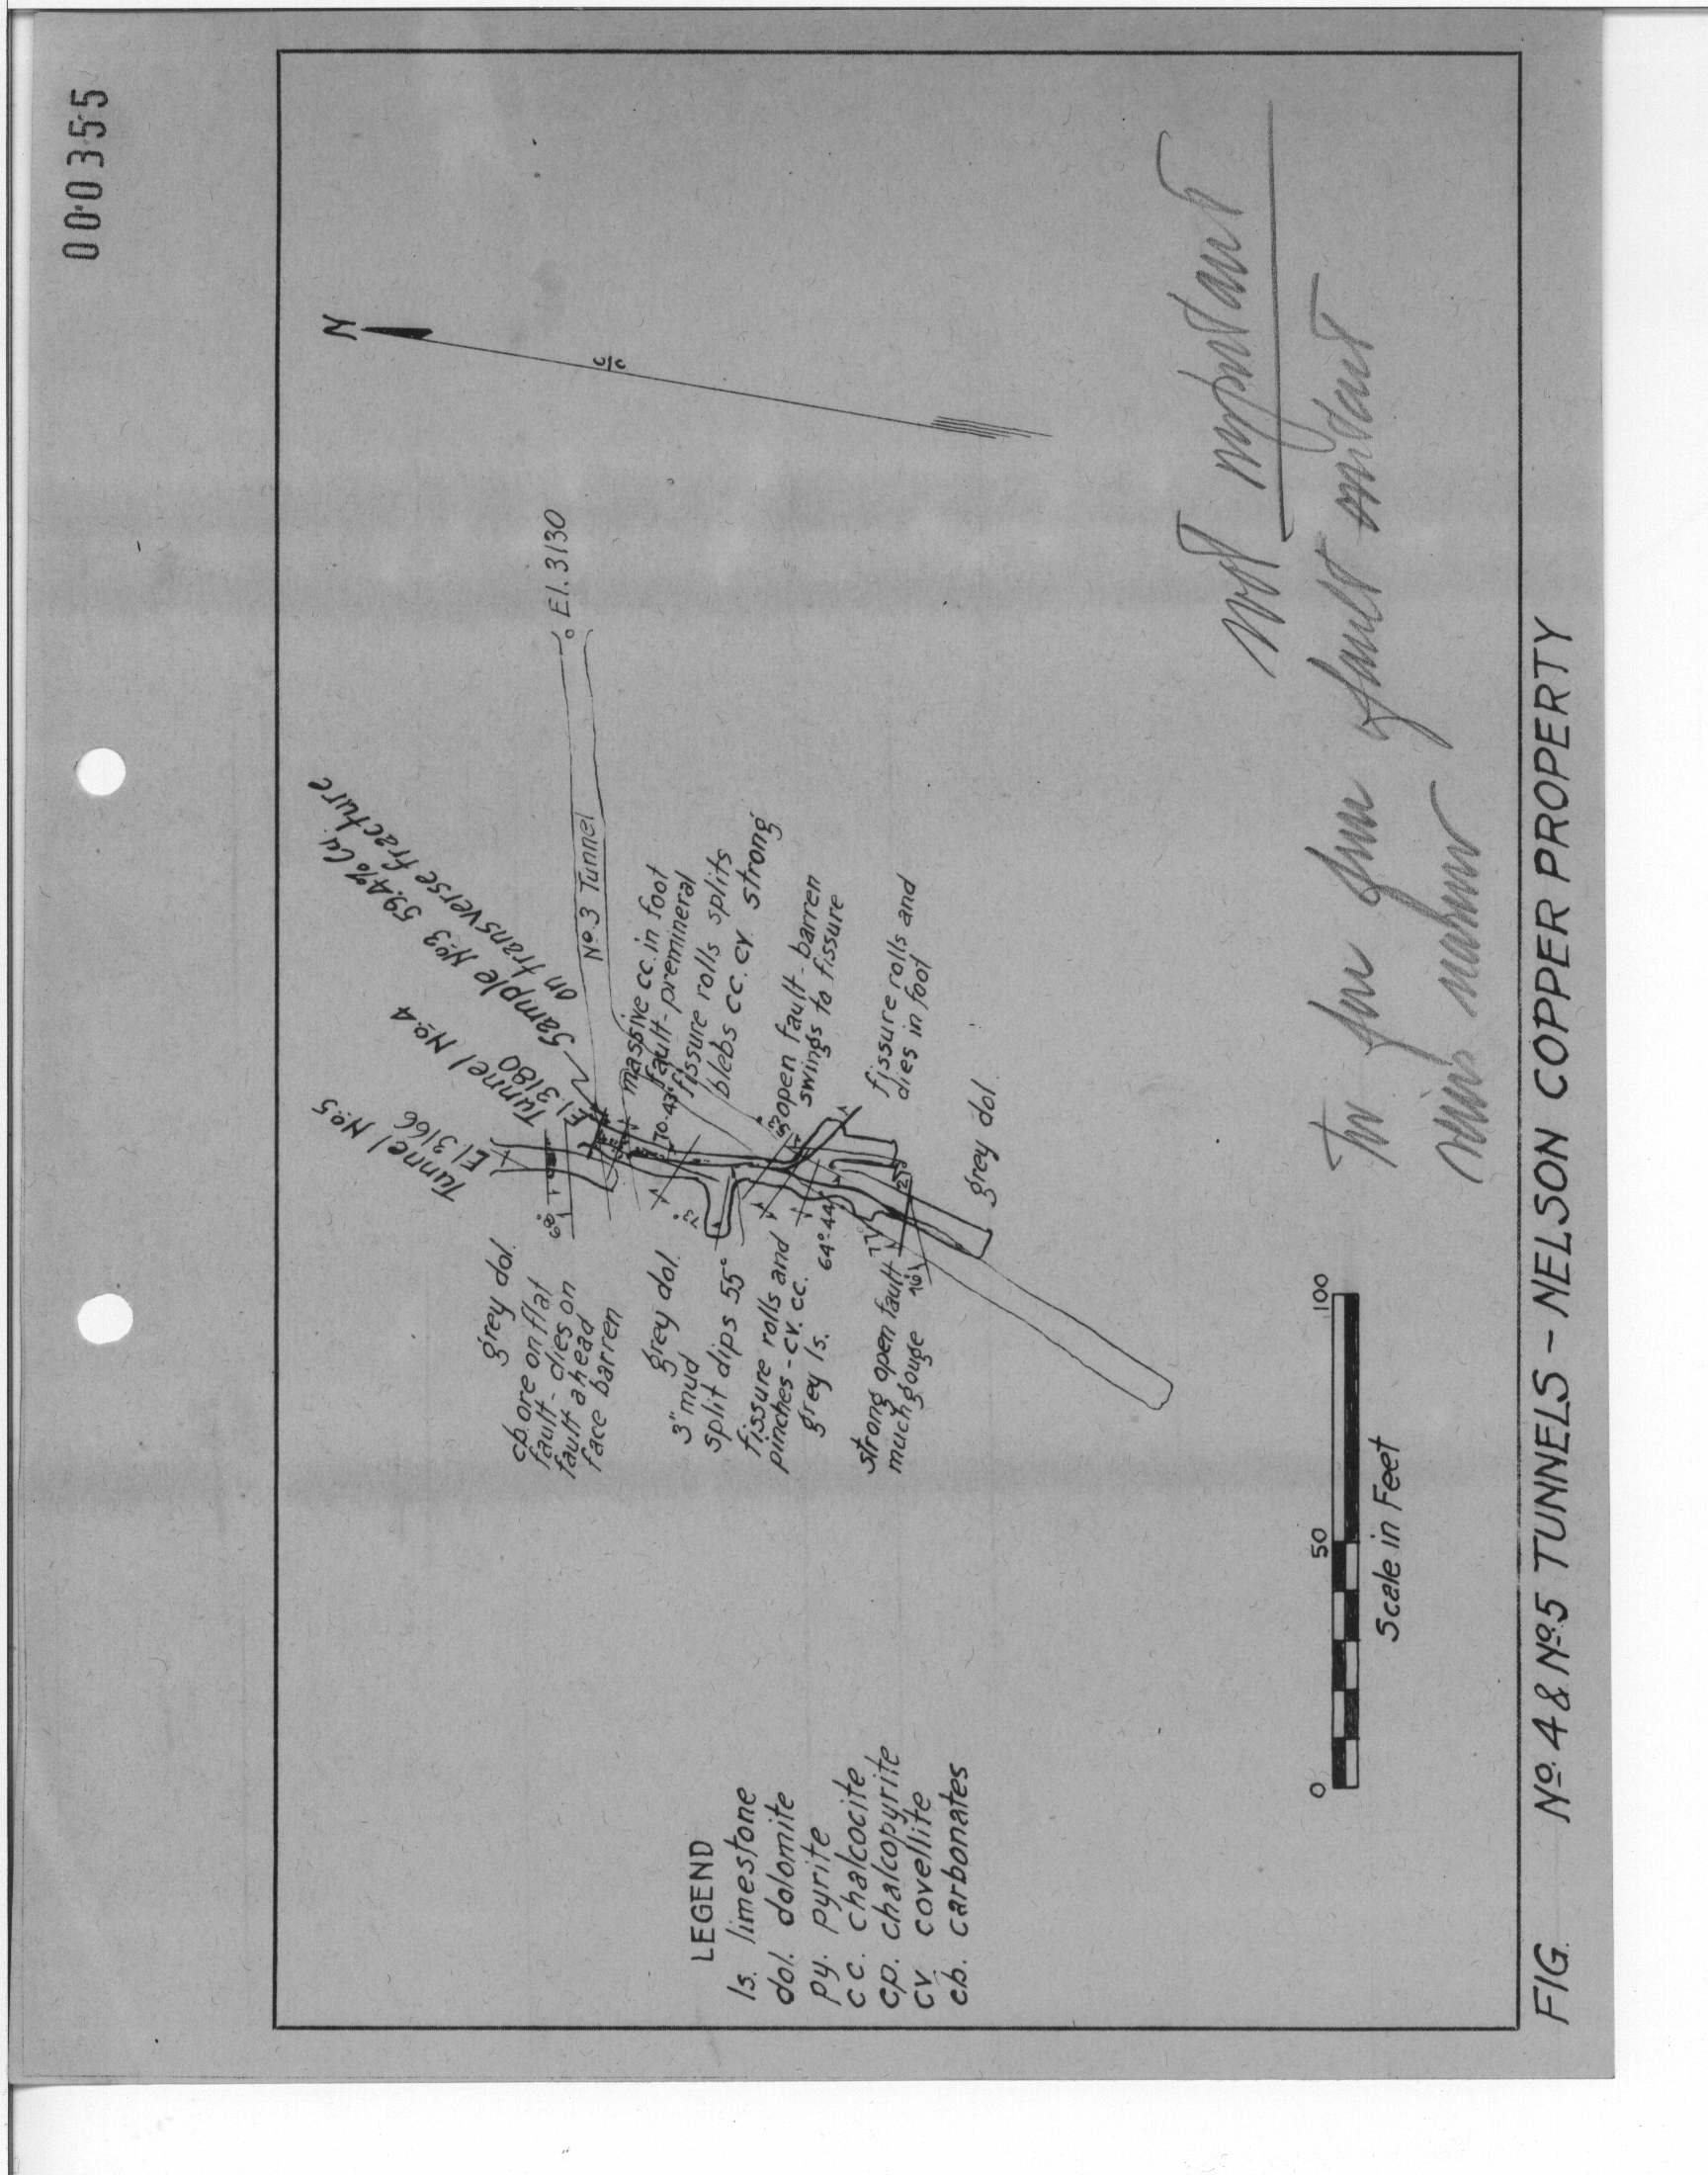 000355
N
Tunnel No.5
El.3166
Tunnel No.4
El.3180
Sample No.3 59.4% Cu.
on transverse fracture
No.3 Tunnel
El.3130
massive cc. in foot
fault-premineral
fissure rolls splits
blebs cc. cv. strong
open fault-barren
swings to fissure
fissure rolls and
dies in foot
grey dol.
70-43°
grey dol.
cb. ore on flat
fault-dies on
fault ahead
face barren
grey dol.
3" mud
split dips 55°
73°
fissure rolls and
pinches-cv. cc.
grey ls.
64°-44
strong open fault
much gouge
LEGEND
ls. limestone
dol. dolomite
py. pyrite
cc. chalcocite
cp. chalcopyrite
cv covellite
cb. carbonates
0 50 100
Scale in Feet
Not important
fault
FIG. No.4 & No.5 TUNNELS - NELSON COPPER PROPERTY